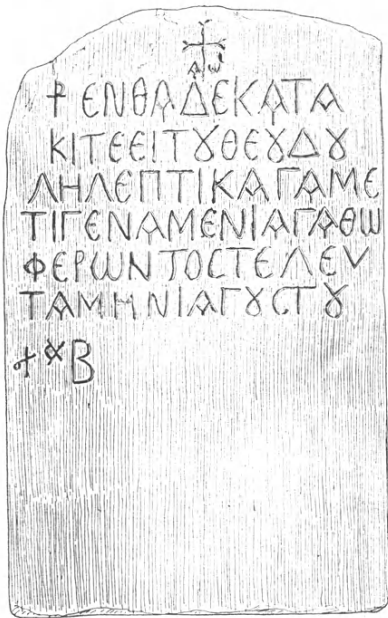 Α ω
⳨ ΕΝΘΑΔΕΚΑΤΑ
ΚΙΤΕΕΙΤȢΘΕȢΔȢ
ΛΗΛΕΠΤΙΚΑΓΑΜΕ
ΤΙΓΕΝΑΜΕΝΙΑΓΑΘω
ΦΕΡωΝΤΟCΤΕΛΕΥ
ΤΑΜΗΝΙΑΓȢCΤȢ
Β